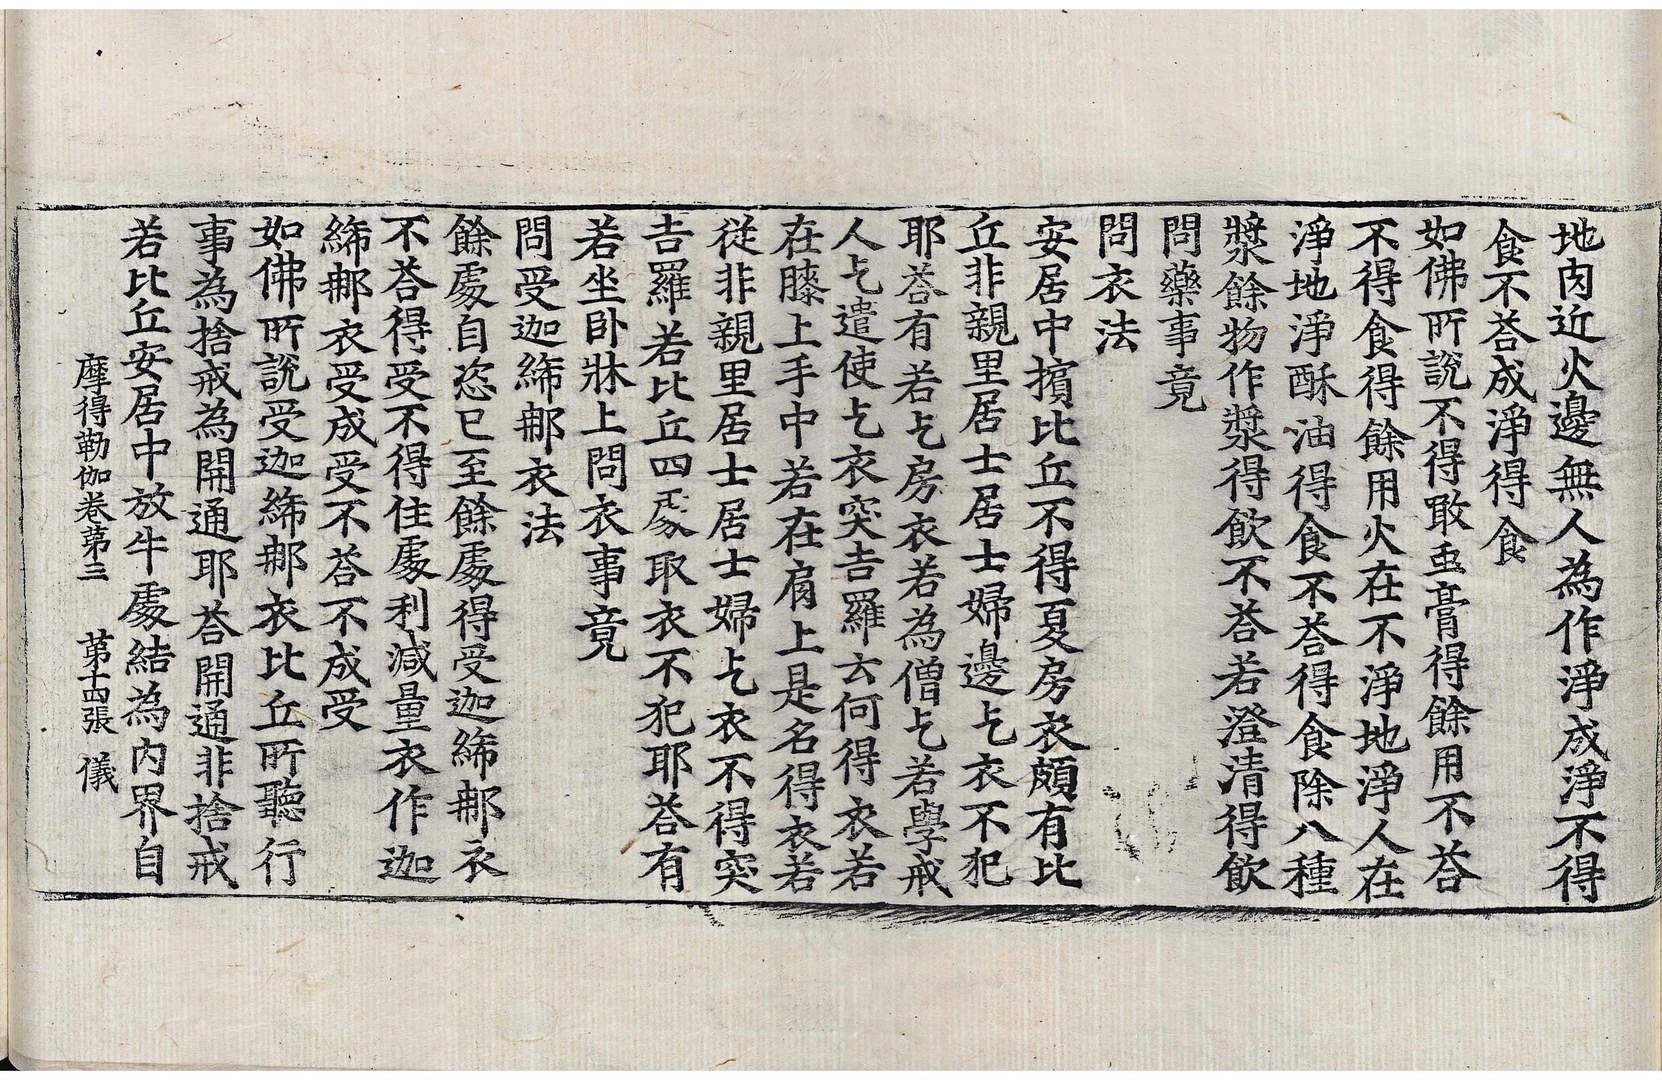 地内近火邊無人為作淨成淨不得
食不荅成淨得食
如佛所說不得敢䖝膏得餘用不荅
不得食得餘用火在不淨地淨人在
淨地淨酥油得食不荅得食除八種
漿餘物作漿得飲不荅若澄清得飲
問藥事竟
問衣法
安居中擯比丘不得夏房衣頗有比
丘非親里居士居士婦邊乞衣不犯
耶荅有若乞房衣若為僧乞若學戒
人乞遣使乞衣突吉羅云何得衣若
在膝上手中若在肩上是名得衣若
從非親里居士居士婦乞衣不得突
吉羅若比丘四處取衣不犯耶荅有
若坐卧牀上問衣事竟
問受迦絺那衣法
餘處自恣已至餘處得受迦絺那衣
不荅得受不得住處利減量衣作迦
絺那衣受成受不荅不成受
如佛所說受迦絺那衣比丘所聽行
事為捨戒為開通耶荅開通非捨戒
摩得勒伽卷第三　第十四張　儀
若比丘安居中放牛處結為内界自